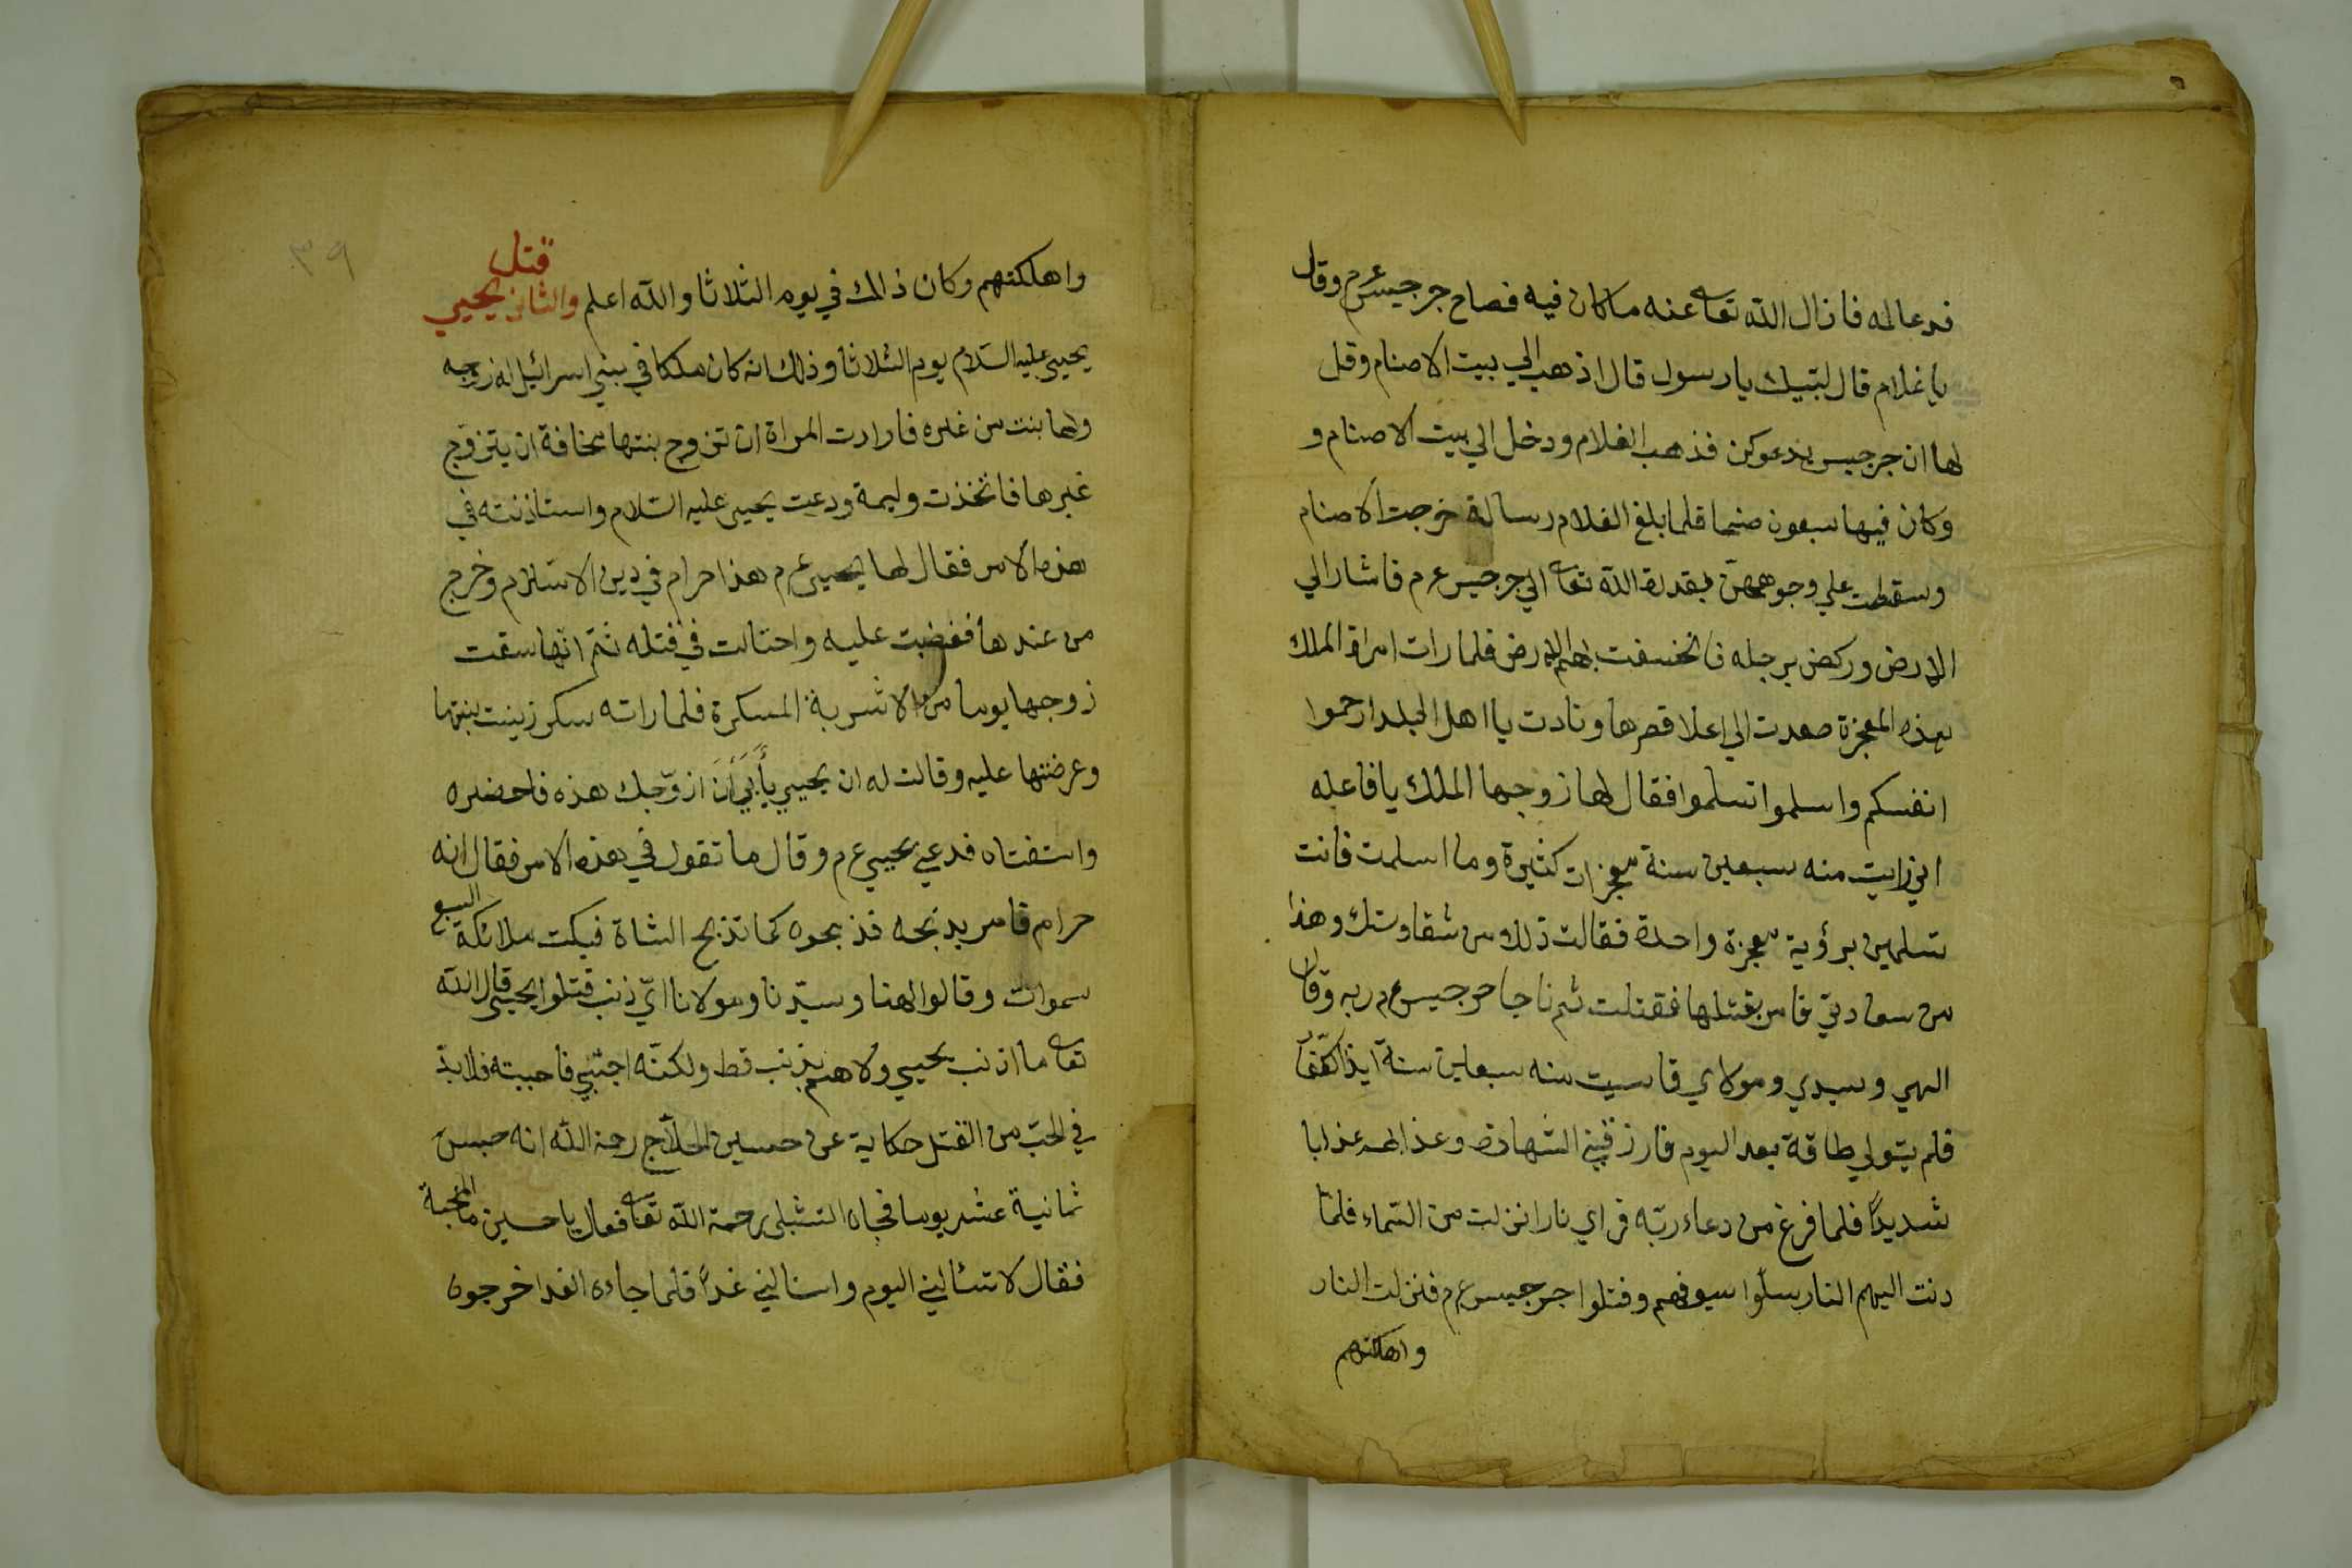 فدعا له فازال الله تعا عنه ما كان فيه فصاح جرجيس عم وقال
يا غلام قال لبّيك يا رسول قال اذهب الي بيت الاصنام وقل
لها ان جرجيس يدعوكن فذهب الغلام ودخل الي بيت الاصنام و
وكان فيها سبعون صنما فلما بلغ الغلام رسالة خرجت الاصنام
وسقطت علي وجوههنّ بقدرة الله تعا الي جرجيس عم فاشار الي
الارض وركض برجله فانخسفت بهم الارض فلما رات امراة الملك
بهذه المعجزة صعدت الي اعلا قصرها ونادت يا اهل البلد ارحموا
انفسكم واسلموا تسلموا فقال لها زوجها الملك يا فاعله
اني رايت منه سبعين سنة معجزات كثيرة وما اسلمت فانت
تسلمين برؤية معجزة واحدة فقالت ذلك من شقاوتك وهذا
من سعادتي فامر بقتلها فقتلت ثم ناجا جرجيس عم ربه وقال
الهي وسيدي ومولاي قاسيت منه سبعين سنة ايذا الكفّار
فلم يتولي طاقة بعد اليوم فارزقني الشهادة وعذابهم عذابا
شديدًا فلما فرغ من دعاء ربّه فراي نارا نزلت من السّماء فلمّا
دنت اليهم النار سلّوا سيوفهم وقتلوا جرجيس عم فنزلت النار
واهلكتهم
٣٩
واهلكتهم وكان ذالك في يوم الثلاثا والله اعلم والثاني قتل يحيي
يحيي عليه السّلام يوم الثلاثا وذلك انه كان ملكا في بني اسرائيل له زوجه
ولها بنت من غيره فارادت المراة ان تزوج بنتها مخافة ان يتزوّج
غيرها فاتخذت وليمة ودعت يحيي عليه السّلام واستاذنته في
هذه الامر فقال لها يحيي عم هذا حرام في دين الاسلام وخرج
من عندها فغضبت عليه واحتالت في قتله ثمّ انّها سقت
زوجها يوما من الاشربة المسكرة فلما راته سكر زينت بنتها
وعرضتها عليه وقالت له ان يحيي يأبي أَنَ ازوّجك هذه فاحضره
واستفتاه فدعي يحيي عم وقال ما تقول في هذه الامر فقال انه
حرام فامر بذبحه فذبحوه كما تذبح الشاة فبكت ملائكة السبع
سموات وقالوا الهنا وسيّدنا ومولانا ايّ ذنب قتلوا يحيي قال الله
تعا ما اذنب يحيي ولا هم بذنب قط ولكنّه احبّني فاحببته فلا بدّ
في الحبّ من القتل حكاية عن حسين الحلّاج رحمة الله انه حبس
ثمانية عشر يوما فجاه الشبلي رحمة الله تعا فقال يا حسين ما المحبة
فقال لا تسالني اليوم واسالني غدًا فلما جاءه الغد اخرجوه